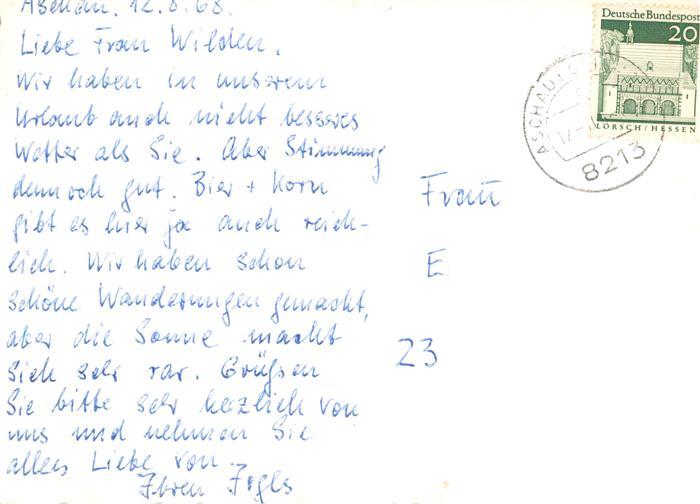 Aschau. 12.8.68.
Liebe Frau Wilden.
Wir haben in unserem
Urlaub auch nicht besseres
Wetter als Sie. Aber Stimmung
dennoch gut. Bier + Korn
gibt es hier ja auch reich-
lich. Wir haben schon
schöne Wanderungen gemacht,
aber die Sonne macht
sich sehr rar. Grüßen
Sie bitte sehr herzlich von
uns und nehmen Sie
alles Liebe von
Ihren
Deutsche Bundespost
20
LORSCH/HESSEN
ASCHAU I.
8213
Frau
E
23